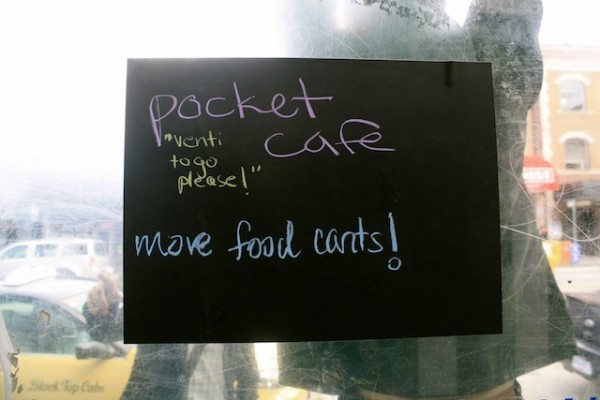 pocket
cafe
"venti
to go
please!"
more food carts!
Black Top Cabs